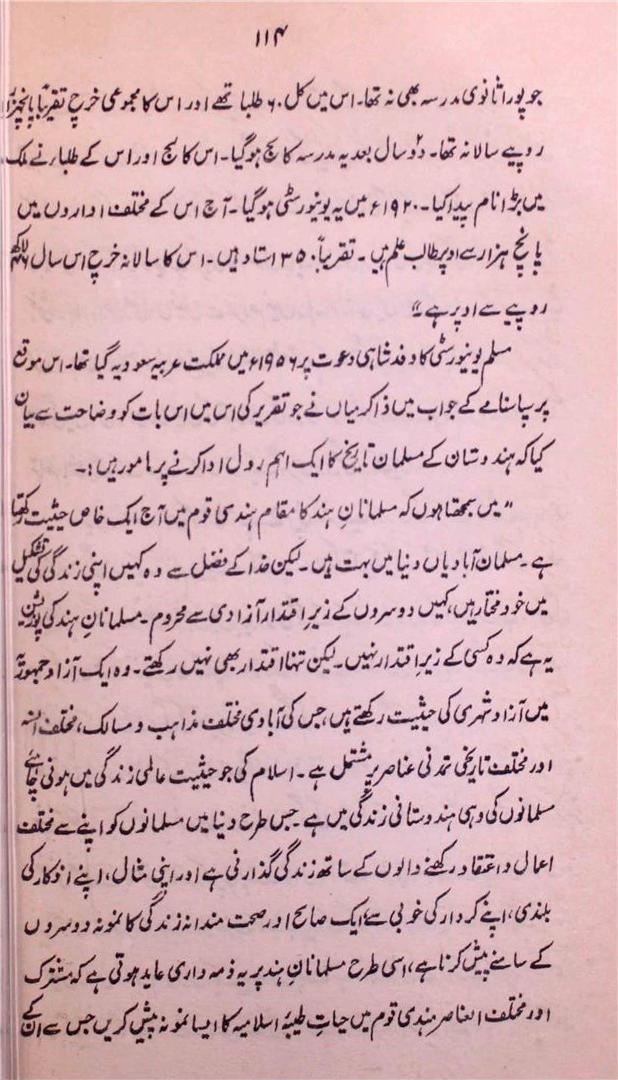 ۱۱۴
جو پورا ثانوی مدرسہ بھی نہ تھا۔ اس میں کل ۶۰ طلبا تھے اور اس کا مجموعی خرچ تقریباً پانچہزار
روپیے سالانہ تھا۔ دو سال بعد یہ مدرسہ کالج ہوگیا۔ اس کالج اور اس کے طلبار نے ملک
میں بڑا نام پیدا کیا۔ ۱۹۲۰ء میں یہ یونیورسٹی ہوگیا۔ آج اس کے مختلف اداروں میں
پانچ ہزار سے اوپر طالب علم ہیں۔ تقریباً ۳۵۰ استاد ہیں۔ اس کا سالانہ خرچ اس سال لاکھ
روپیے سے اوپر ہے۔"
مسلم یونیورسٹی کا وفد شاہی دعوت پر ۱۹۵۶ء میں مملکت عربیہ سعودیہ گیا تھا۔ اس موقع
پر سپاسنامے کے جواب میں ذاکر میاں نے جو تقریر کی اس میں اس بات کو وضاحت سے بیان
کیا کہ ہندوستان کے مسلمان تاریخ کا ایک اہم رول ادا کرنے پر مامور ہیں :۔
"میں سمجھتا ہوں کہ مسلمانانِ ہند کا مقام ہندی قوم میں آج ایک خاص حیثیت رکھتا
ہے۔ مسلمان آبادیاں دنیا میں بہت ہیں۔ لیکن خدا کے فضل سے وہ کہیں اپنی زندگی کی تشکیل
میں خود مختار ہیں، کہیں دوسروں کے زیرِ اقتدار آزادی سے محروم۔ مسلمانانِ ہند کی پوزیشن
یہ ہے کہ وہ کسی کے زیرِ اقتدار نہیں۔ لیکن تنہا اقتدار بھی نہیں رکھتے۔ وہ ایک آزاد جمہوریہ
میں آزاد شہری کی حیثیت رکھتے ہیں، جس کی آبادی مختلف مذاہب و مسالک، مختلف السنہ
اور مختلف تاریخی تمدنی عناصر پر مشتمل ہے۔ اسلام کی جو حیثیت عالمی زندگی میں ہونی چاہئے
مسلمانوں کی وہی ہندوستانی زندگی میں ہے۔ جس طرح دنیا میں مسلمانوں کو اپنے سے مختلف
اعمال و اعتقاد رکھنے والوں کے ساتھ زندگی گذارنی ہے اور اپنی مثال، اپنے افکار کی
بلندی، اپنے کردار کی خوبی سے ایک صالح اور صحت مندانہ زندگی کا نمونہ دوسروں
کے سامنے پیش کرنا ہے، اسی طرح مسلمانانِ ہند پر یہ ذمہ داری عاید ہوتی ہے کہ مشترک
اور مختلف العناصر ہندی قوم میں حیاتِ طیبۂ اسلامیہ کا ایسا نمونہ پیش کریں جس سے ان کے